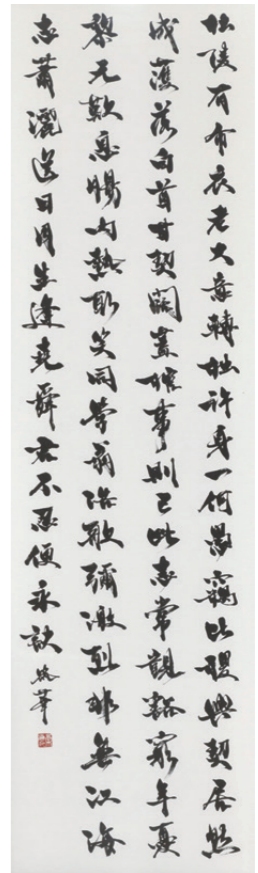 杜陵有布衣老大意轉拙許身一何愚竊比稷與契居然
成濩落白首甘契闊蓋棺事則已此志常覬豁窮年憂
黎元歎息腸內熱取笑同學翁浩歌彌激烈非無江海
志蕭灑送日月生逢堯舜君不忍便永訣 華